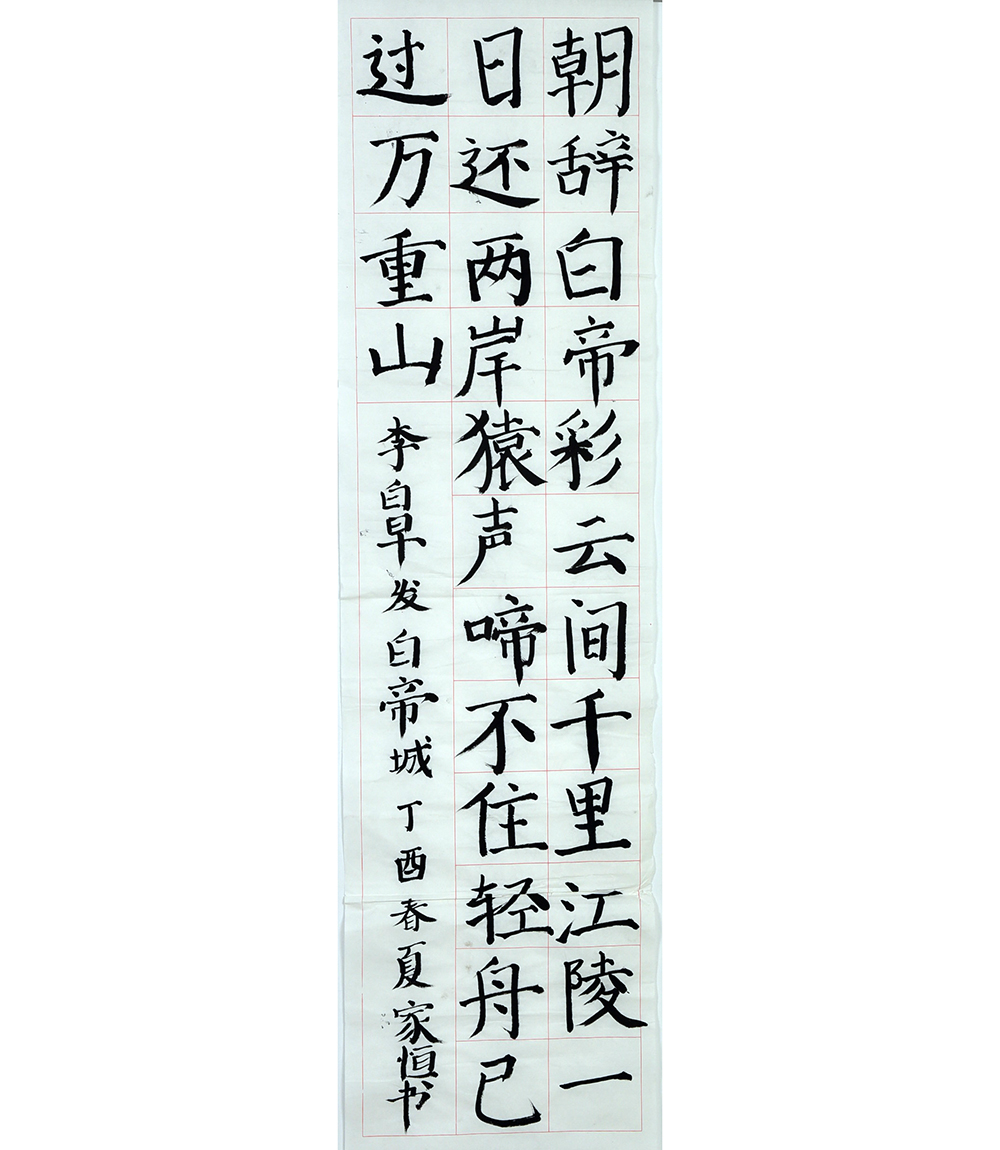 朝辞白帝彩云间千里江陵一
日还两岸猿声啼不住轻舟已
过万重山
李白早发白帝城丁酉春夏家恒书